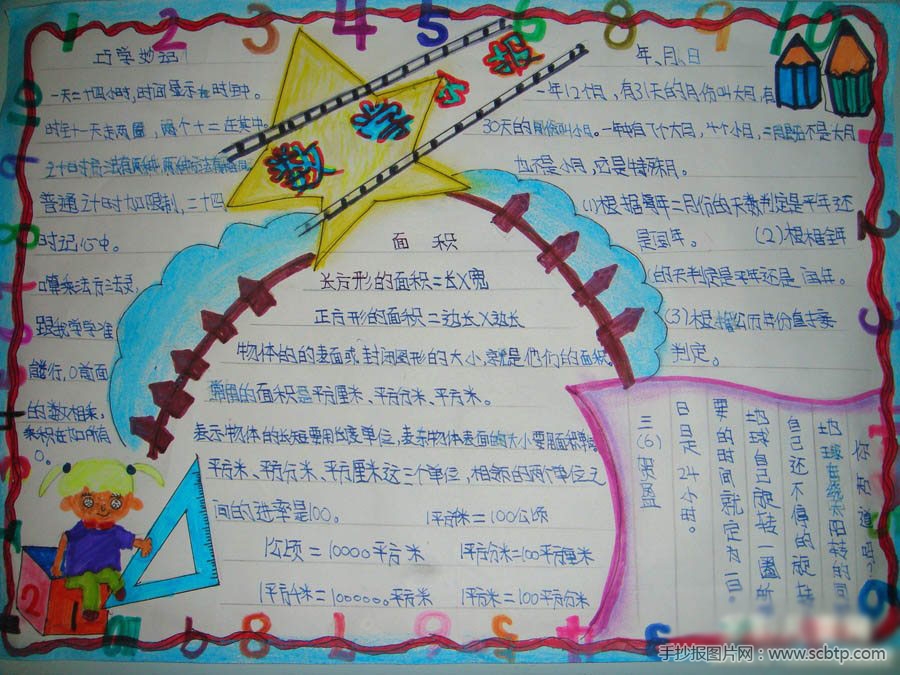 1 2 3 4 5 6 7 8 9 10
数学小报
巧学妙记
一天二十四小时,时间显示在时钟中。
时针一天走两圈,两个十二在其中
普通计时加限制,二十四
时记心中。
口算乘法方法灵,
跟我学学准
能行,0前面
的数相乘,
乘积在加所有
0。
年、月、日
一年12个月,有31天的月份叫大月,有
30天的月份叫小月。一年中有7个大月,4个小月,二月既不是大月
也不是小月,还是特殊月。
(1)根据每年二月份的天数判定是平年还
是闰年。(2)根据全年
的天判定是平年还是闰年。
(3)根据公元年份直接
判定。
面积
长方形的面积=长X宽
正方形的面积=边长X边长
物体的的表面或封闭图形的大小,就是他们的面积
常用的面积是平方厘米、平方分米、平方米。
表示物体的长短要用长度单位,表示物体表面的大小要用面积单位
平方米、平方分米、平方厘米这三个单位,相邻的两个单位之
间的进率是100。 1平方千米=100公顷
1公顷=10000平方米 1平方分米=100平方厘米
1平方千米=1000000平方米 1平方米=100平方分米
你知道吗?
地球在绕太阳转的同
自己还不停的旋转
地球自己旋转一圈所
要的时间就定为一日。
日是24小时。
三(6)贺盈
2
手抄报图片网:www.scbtp.com